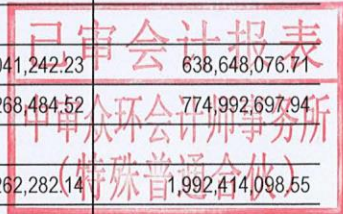 已审会计报表
041,242.23 638,648,076.71
268,484.52 774,992,697.94
中审众环会计师事务所
262,282.14 1,992,414,098.55
（特殊普通合伙）